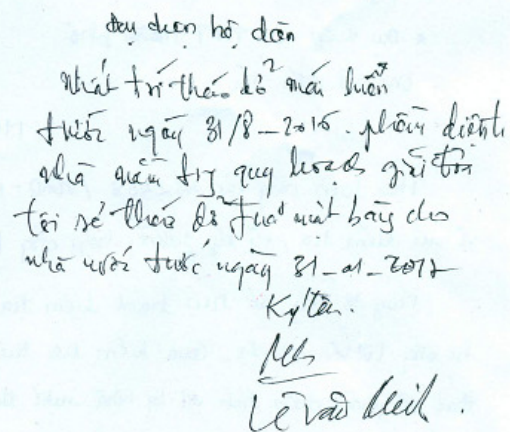 đại diện hộ dân
Nhất trí tháo dỡ mái
trước ngày 31/8-2016. phần diện tích
nhà nằm trong quy hoạch giải tỏa
tôi sẽ tháo dỡ trả mặt bằng cho
nhà nước trước ngày 31-01-2017
Ký tên.
Lê Văn